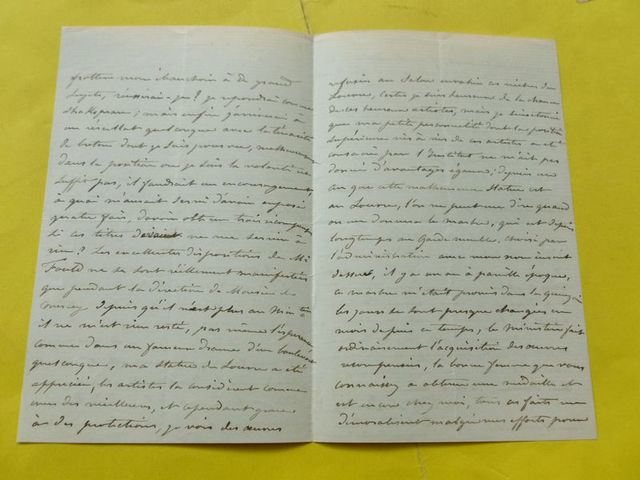 frotter mon ébauchoir à de grands
sujets, réussirai-je? je répondrai comme
Shakspeare; mais enfin parvenir à
un resultat quelconque avec la ténacité
de breton dont je suis pourvue, malheureusement
dans la position ou je suis la volonté ne
suffit pas, il faudrait un encouragement,
à quoi m'aurait servi d'avoir exposé
quatre fois, d'avoir obtenu trois récompenses
si ces titres devaient ne me servir à
rien? Les excellentes dispositions de Mr
Fould ne se sont réellement manifestées
que pendant la direction de Monsieur de
depuis qu'il n'est plus au Ministère
il ne m'est rien resté, pas même l'espérance
comme dans un fameux drame d'un boulevard
quelconque, ma statue du Louvre a été
appréciée, les artistes la considèrent comme
une des meilleures, et cependant grace
à des protections, je vois des œuvres
refusées au Salon envahir ces niches du
Louvre, certes je suis heureuse de la chance
de ces heureux artistes, mais je
que ma petite personnalité dont la position
supérieure vis à vis de ces artistes a été
consacrée par l'Institut ne m'ait pas
donné d'avantages égaux; depuis un
an que cette malheureuse statue est
au Louvre, l'on ne peut me dire quand
on me donnera le marbre, qui est depuis
longtemps au Garde meubles, choisi par
l'administration avec mon nom inscrit
dessus, il y a un an à pareille époque,
ce marbre m'était promis dans la quinzaine
les jours se sont presque changés en
mois depuis ce temps, le Ministère fait
ordinairement l'acquisition des œuvres
récompensées, la bonne femme que vous
connaissez a obtenu une médaille et
est encore chez moi, tous ces faits me
démoralisent malgré mes efforts pour